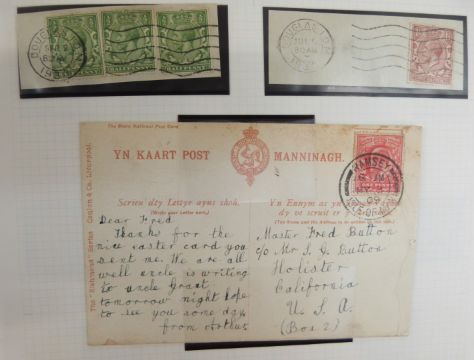 DOUGLAS
HALFPENNY
HALFPENNY
HALFPENNY
DOUGLAS
The Manx National Post Card
YN KAART POST MANNINAGH.
Scrieu dty Lettyr ayns shoh.
(Write your letter here)
Yn Ennym as yn
dy ve scruit er y
(The Name and the Address to be written
The "Ellan Vannin" Series
Liverpool.
RAMSEY
MY
09
ISLE OF MAN
ONE PENNY
Dear Fred
Thanks for the
nice easter card you
sent me. We are all
well uncle is writing
to uncle Grant
tomorrow night hope
to see you some day
from Arthur
Master Fred Button
c/o Mr S. J. Button
Holister
California
U. S. A
(Box 2)